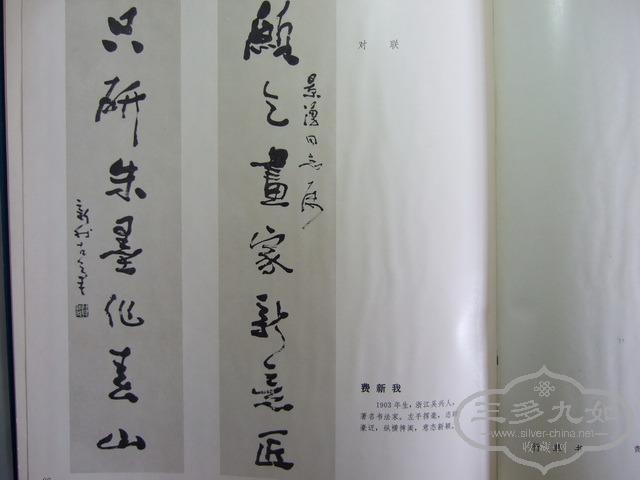 願乞畫家新意匠
只研朱墨作春山
对 联
费 新 我
1903年生，浙江吴兴人，
著名书法家。左手挥毫，恣
豪迈，纵横捭阖，意态新颖。
三多九如
www.silver-china.net